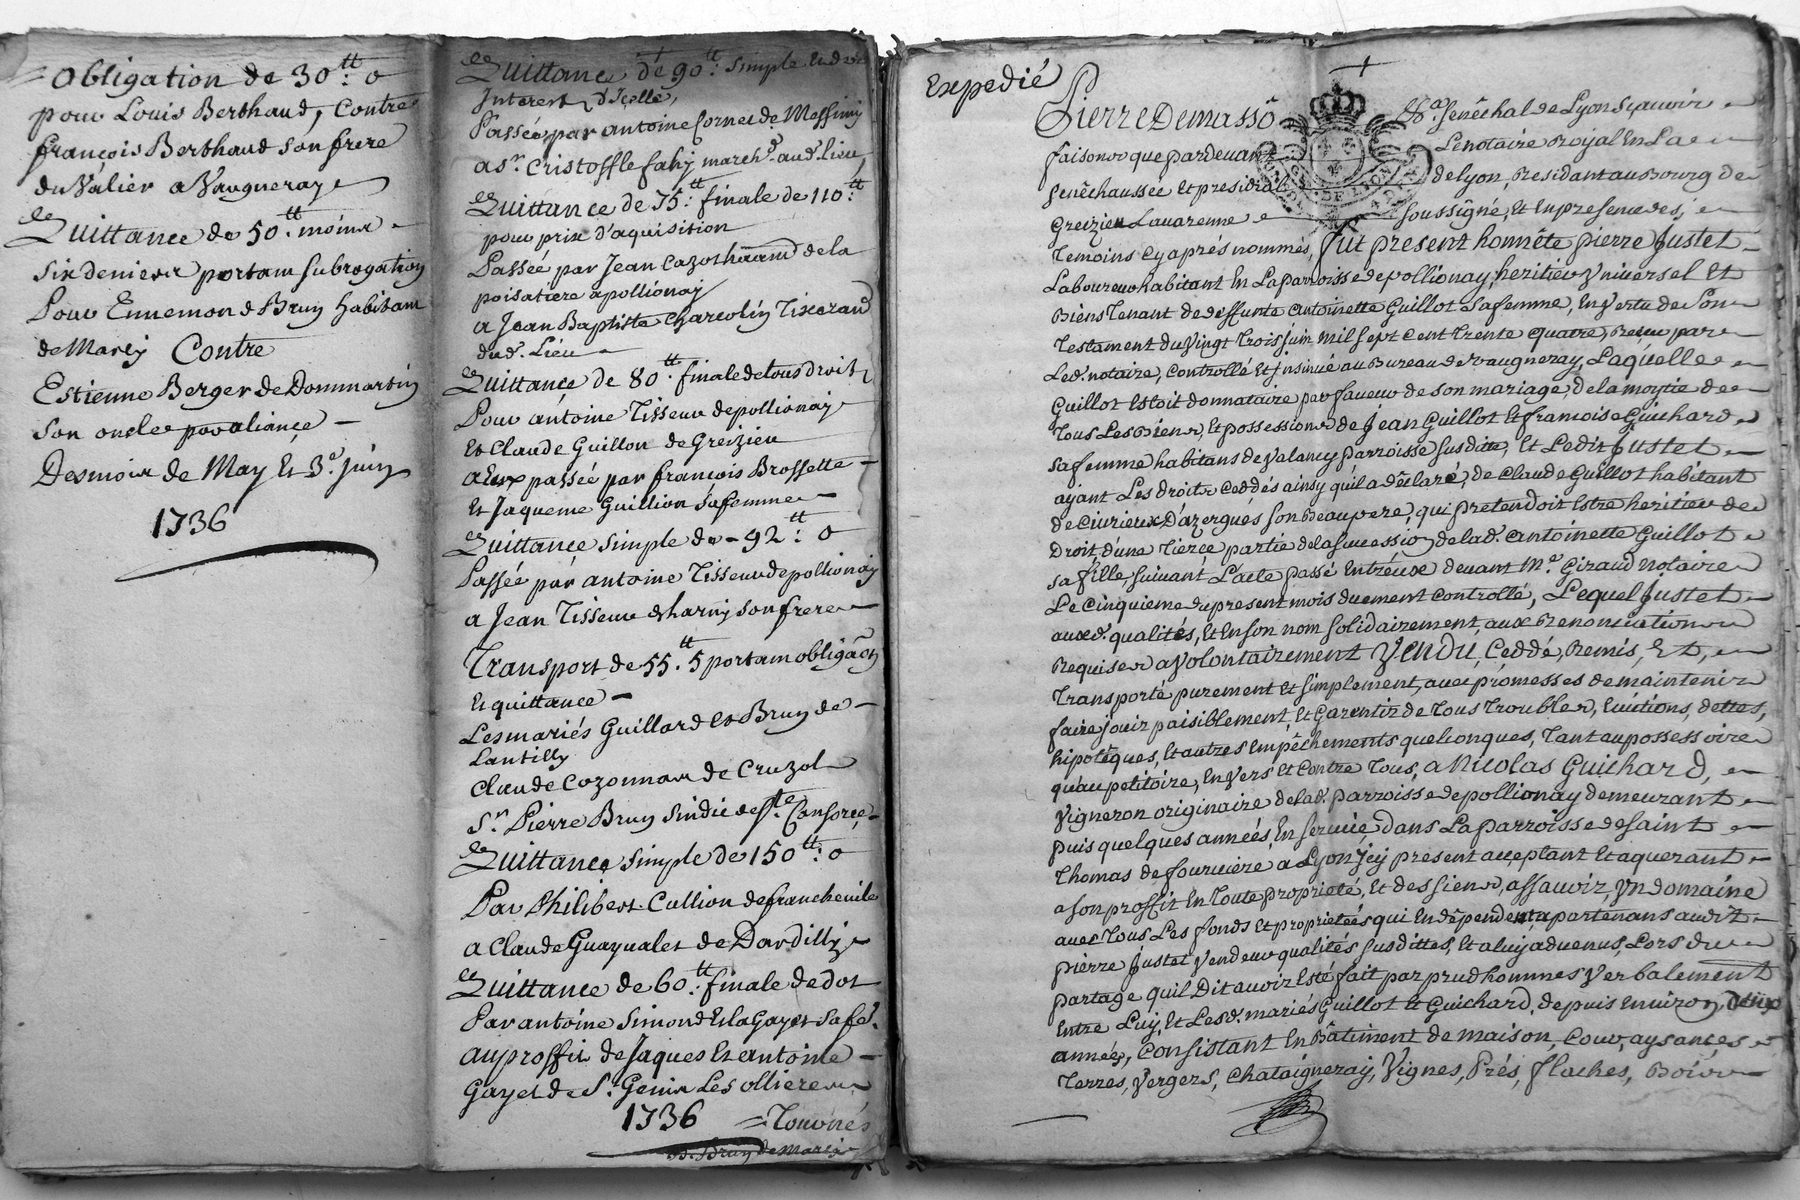 = Obligation de 30tt: 0
pour Louis Berthaud, Contre
françois Berthaud son frere
du Valier a Vaugneray
Quittance de 50tt: moins
six deniers portant subrogation
Pour Ennemond Bruy habitant
de Marcy Contre
Estienne Berger de Dommartin
son oncle par aliance
Des mois de May et 3e. Juin
1736
Quittance de 90tt: simple et des
Interest d'Icelle,
Passée par antoine Cornet de Messimy
a sr. Cristoffle fahy marchd. aud. Lieu
Quittance de 75tt: finale de 110tt:
pour prix d'aquisition
Passée par Jean Cazot de la
poisatiere a pollionay
a Jean Baptiste Charcolin Tixerand
dud. Lieu
Quittance de 80tt: finale de tous droits
Pour antoine Tisseur de pollionay
et Claude Guillon de Greizieu
a Eux passée par françois Brossette
et Jaqueme Guillion sa femme
Quittance simple de 92tt: 0
Passée par antoine Tisseur de pollionay
a Jean Tisseur charny son frere
Transport de 55tt. 5 portant obligaôn
et quittance
Les mariés Guillard et Bruy de
Lantilly
Claude Cozonnar de Cruzol
Sr. Pierre Bruy sindic de Ste. Consorce
Quittance simple de 150tt: 0
Par Philibert Cullion de francheville
a Claude Guayualet de Dardilly
Quittance de 60tt: finale de dot
Par antoine Simond et la Gayet sa fe.
au proffit de Jaques et antoine
Gayet de St. Genix Les ollieres
1736 = Touvnés
Bruy de Marcy
Expedié
Pierre Demassô Sénêchal de Lyon sçavoir
faisons que pardevant Le notaire Royal En La
senêchaussée et presidial de Lyon, Residant au Bourg de
Greizieu Lavarenne soussigné, et En presence des
temoins cy aprés nommés, fut present honnête pierre Justet
Laboureur habitant En La parroisse de pollionay, heritier Vniversel et
Biens Tenant de deffunte antoinette Guillot sa femme, En vertu de son
testament du vingt trois juin mil sept cent trente quatre, Receu par
Led. notaire, Controllé et jnsinué au Bureau de vaugneray, Laquelle
Guillot estoit donnataire par faveur de son mariage, de la moytié de
Tous Les Biens, et possessions de jean Guillot et francoise Guichard
sa femme habitans de valency parroisse susditte, et Ledit Justet
ayant Les droits ceddés ainsy qu'il a déclaré, de claude Guillot habitant
de civrieux D'azergues son Beaupere, qui pretendoit Estre heritier de
droit, d'une Tierce partie de la succession de lad. antoinette Guillot
sa fille, suivant L'acte passé Entréux devant Me. Giraud notaire
Le cinquieme du present mois duement controllé, Lequel Justet
auxd. qualités, et en son nom solidairement, aux Renonciations
Requises a volontairement Vendu, Ceddé, Remis, et,
Transporté purement et simplement, avec prómesses de maintenir
faire jouir paisiblement, et Garentir de Tous Troubles, Evictions, dettes,
hipotêques, et autres Empêchements quelconques, Tant au possessoire
qu'au petitoire, Envers et contre Tous, a Nicolas Guichard,
vigneron originaire de lad. parroisse de pollionay demeurant
puis quelques années, En service, dans La parroisse de saint
Thomas de fourviere a Lyon jcy present acceptant et aquerant
a son proffit En Toute proprieté, et des siens, assavoir, vn domaine
avec Tous Les fonds et proprietées qui En dépendent apartenans audit
pierre Justet vendeur qualités susdittes, et a luy advenus, Lors du
partage qu'il Dit avoir Esté fait par prudhommes verbalement
Entre Luy, et Lesd. mariés Guillot et Guichard, depuis Environ deux
années, Consistant En Bâtiment de maison, Cour, aysances
Terres, Vergers, Chataigneray, Vignes, Prés, flaches, Bois